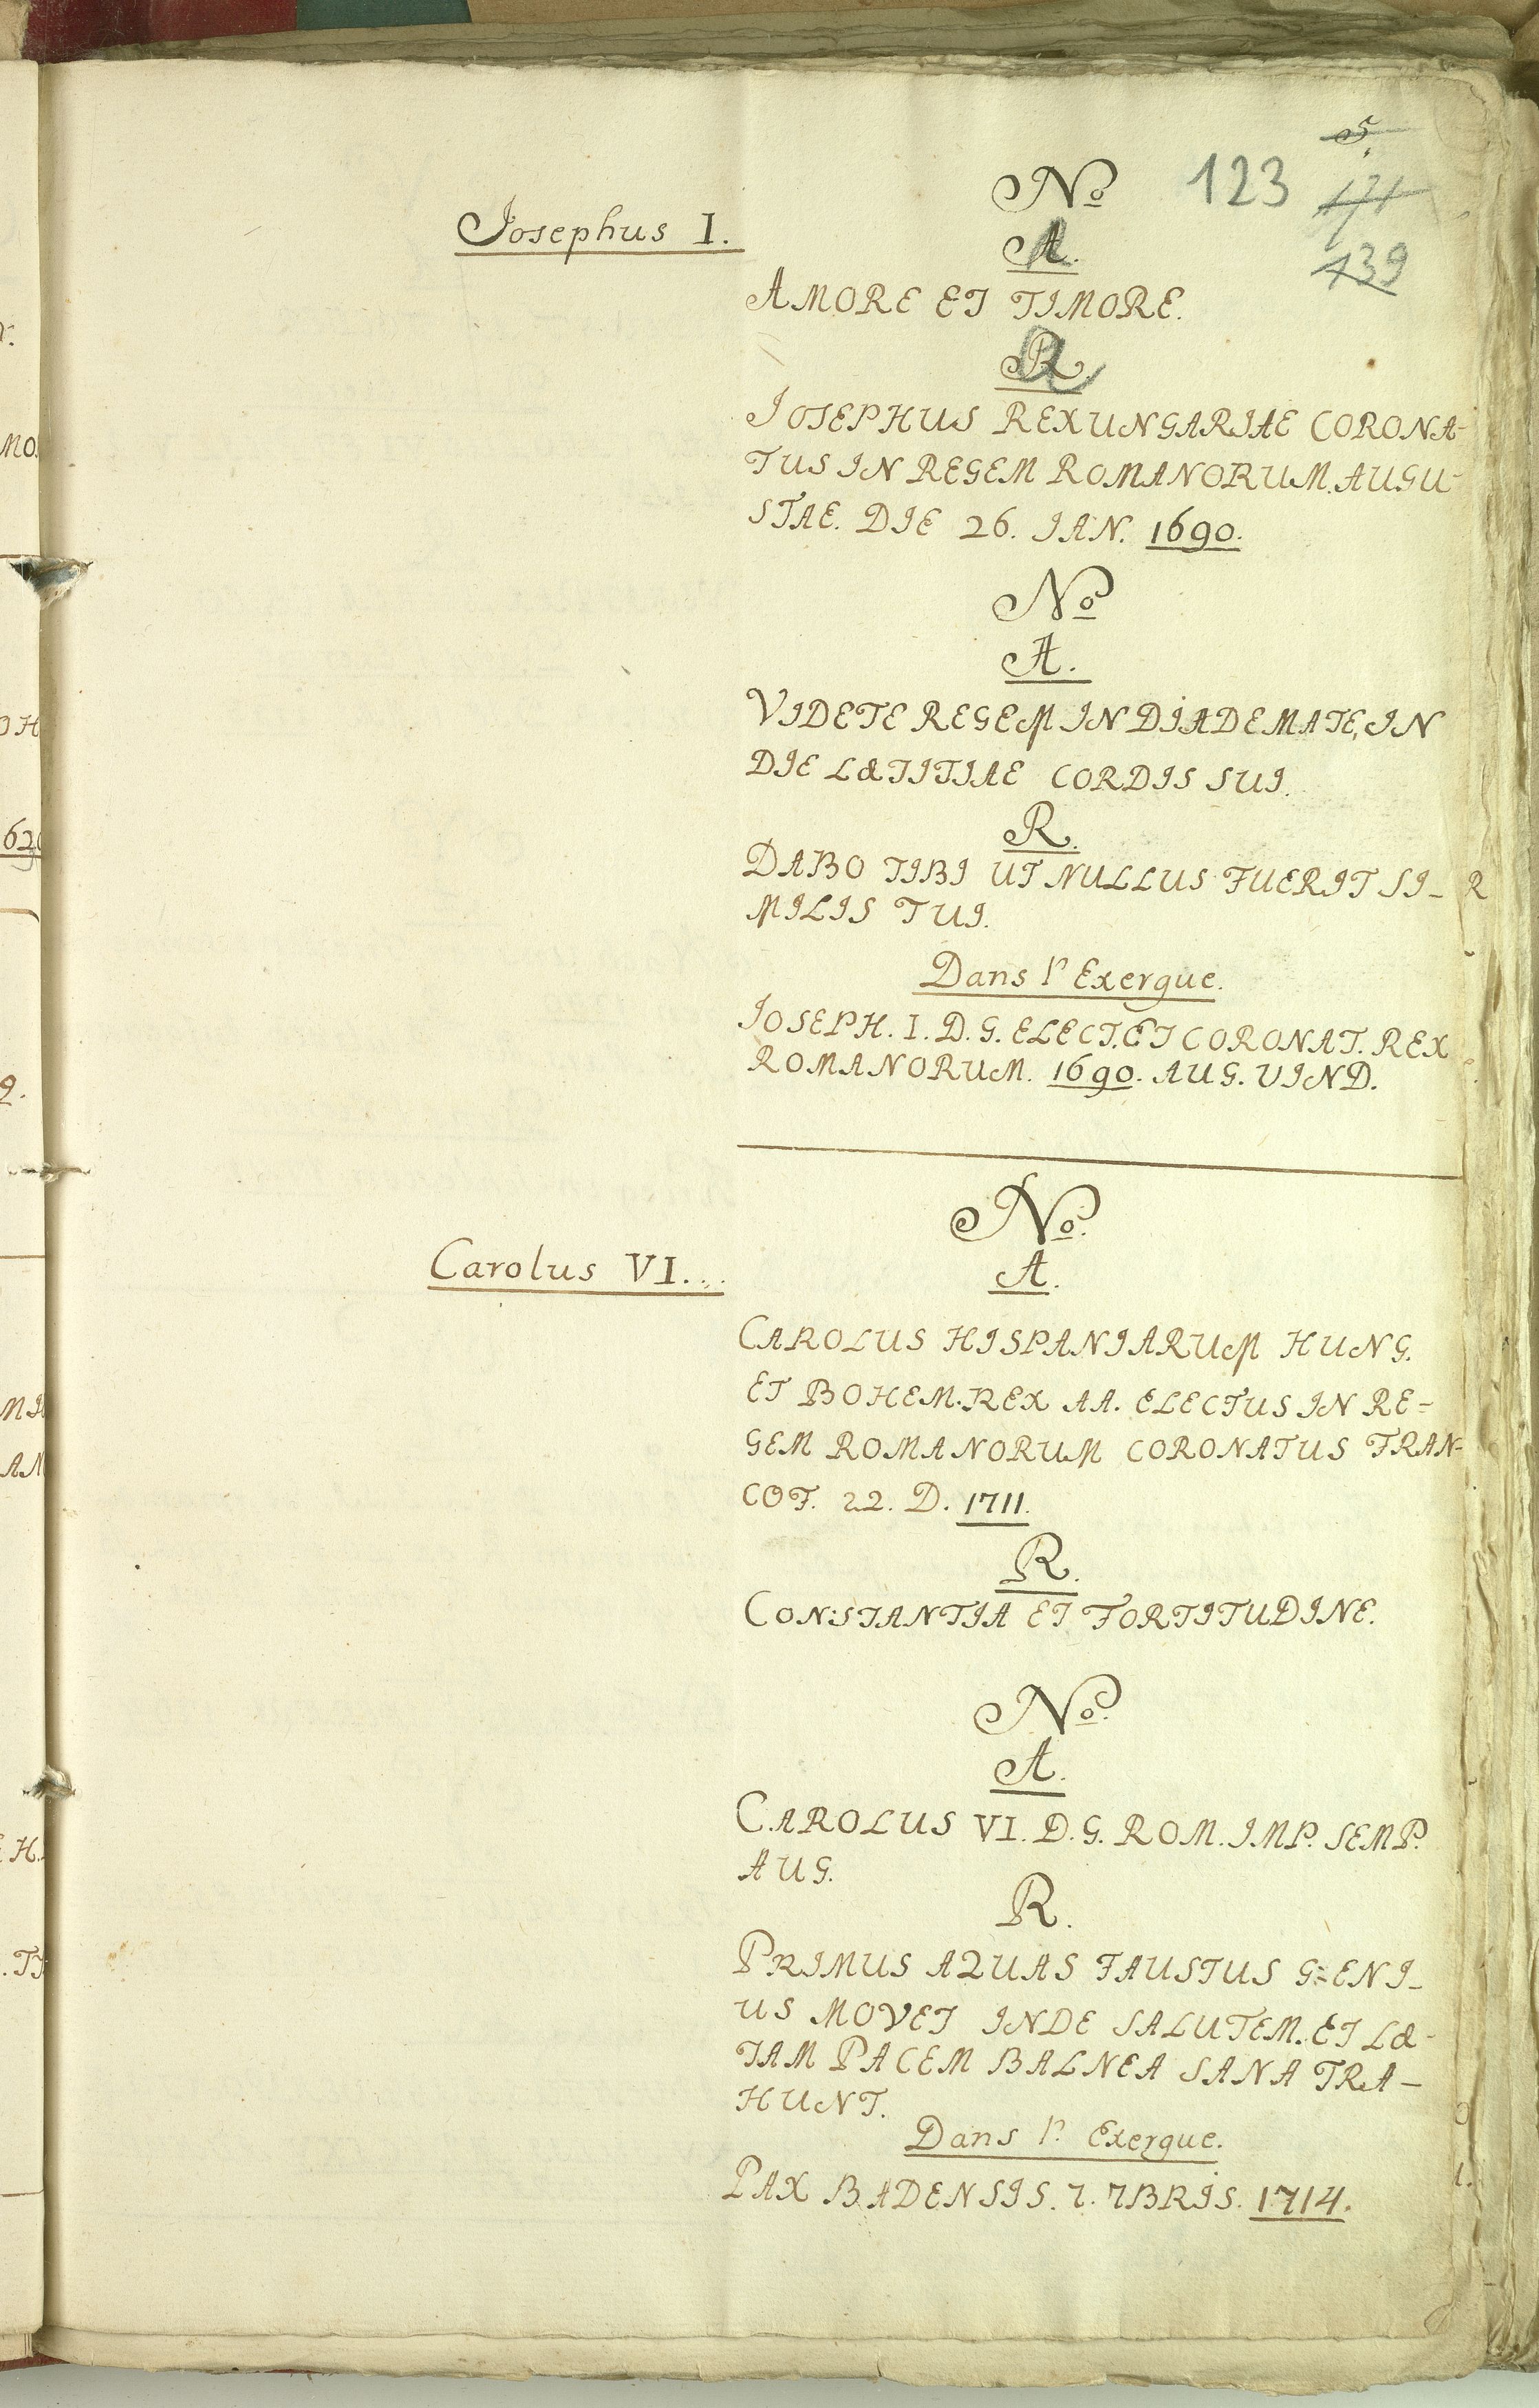 5.
123
171
139
Nº
Josephus I.
A.
AMORE ET TIMORE.
R.
JOSEPHUS REX UNGARIAE CORONA-
TUS IN REGEM ROMANORUM. AUGU-
STAE. DIE 26. JAN. 1690.
Nº
A.
VIDETE REGEM IN DIADEMATE, IN
DIE LÆTITIAE CORDIS SUI.
R.
DABO TIBI UT NULLUS FUERIT SI-
MILIS TUI.
Dans l' Exergue.
JOSEPH. I. D. G. ELECT. ET CORONAT. REX
ROMANORUM. 1690. AUG. VIND.
Nº.
Carolus VI...
A.
CAROLUS HISPANIARUM HUNG.
ET BOHEM. REX AA. ELECTUS IN RE=
GEM ROMANORUM CORONATUS FRAN-
COF. 22. D. 1711.
R.
CONSTANTIA ET FORTITUDINE.
Nº.
A.
CAROLUS VI. D. G. ROM. IMP. SEMP.
AUG.
R.
PRIMUS AQUAS FAUSTUS GENI-
US MOVET INDE SALUTEM. ET LÆ-
TAM PACEM BALNEA SANA TRA-
HUNT.
Dans l' Exergue.
PAX BADENSIS. 7. 7BRIS. 1714.